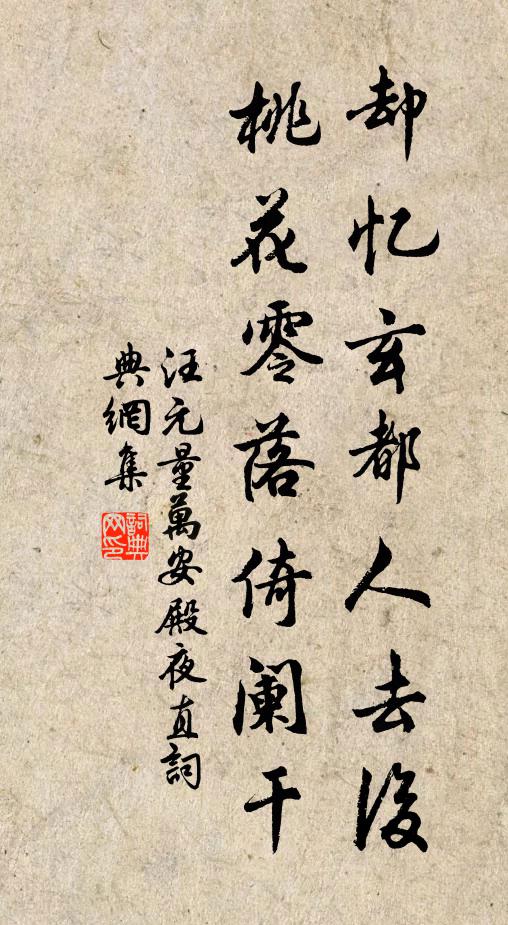 却忆玄都人去後
桃花零落倚阑干
汪元量萬安殿夜直詞
典網集
詞典网印